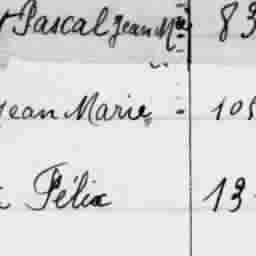 Pascal Jean Mie 83
Jean Marie 105
Félix 13